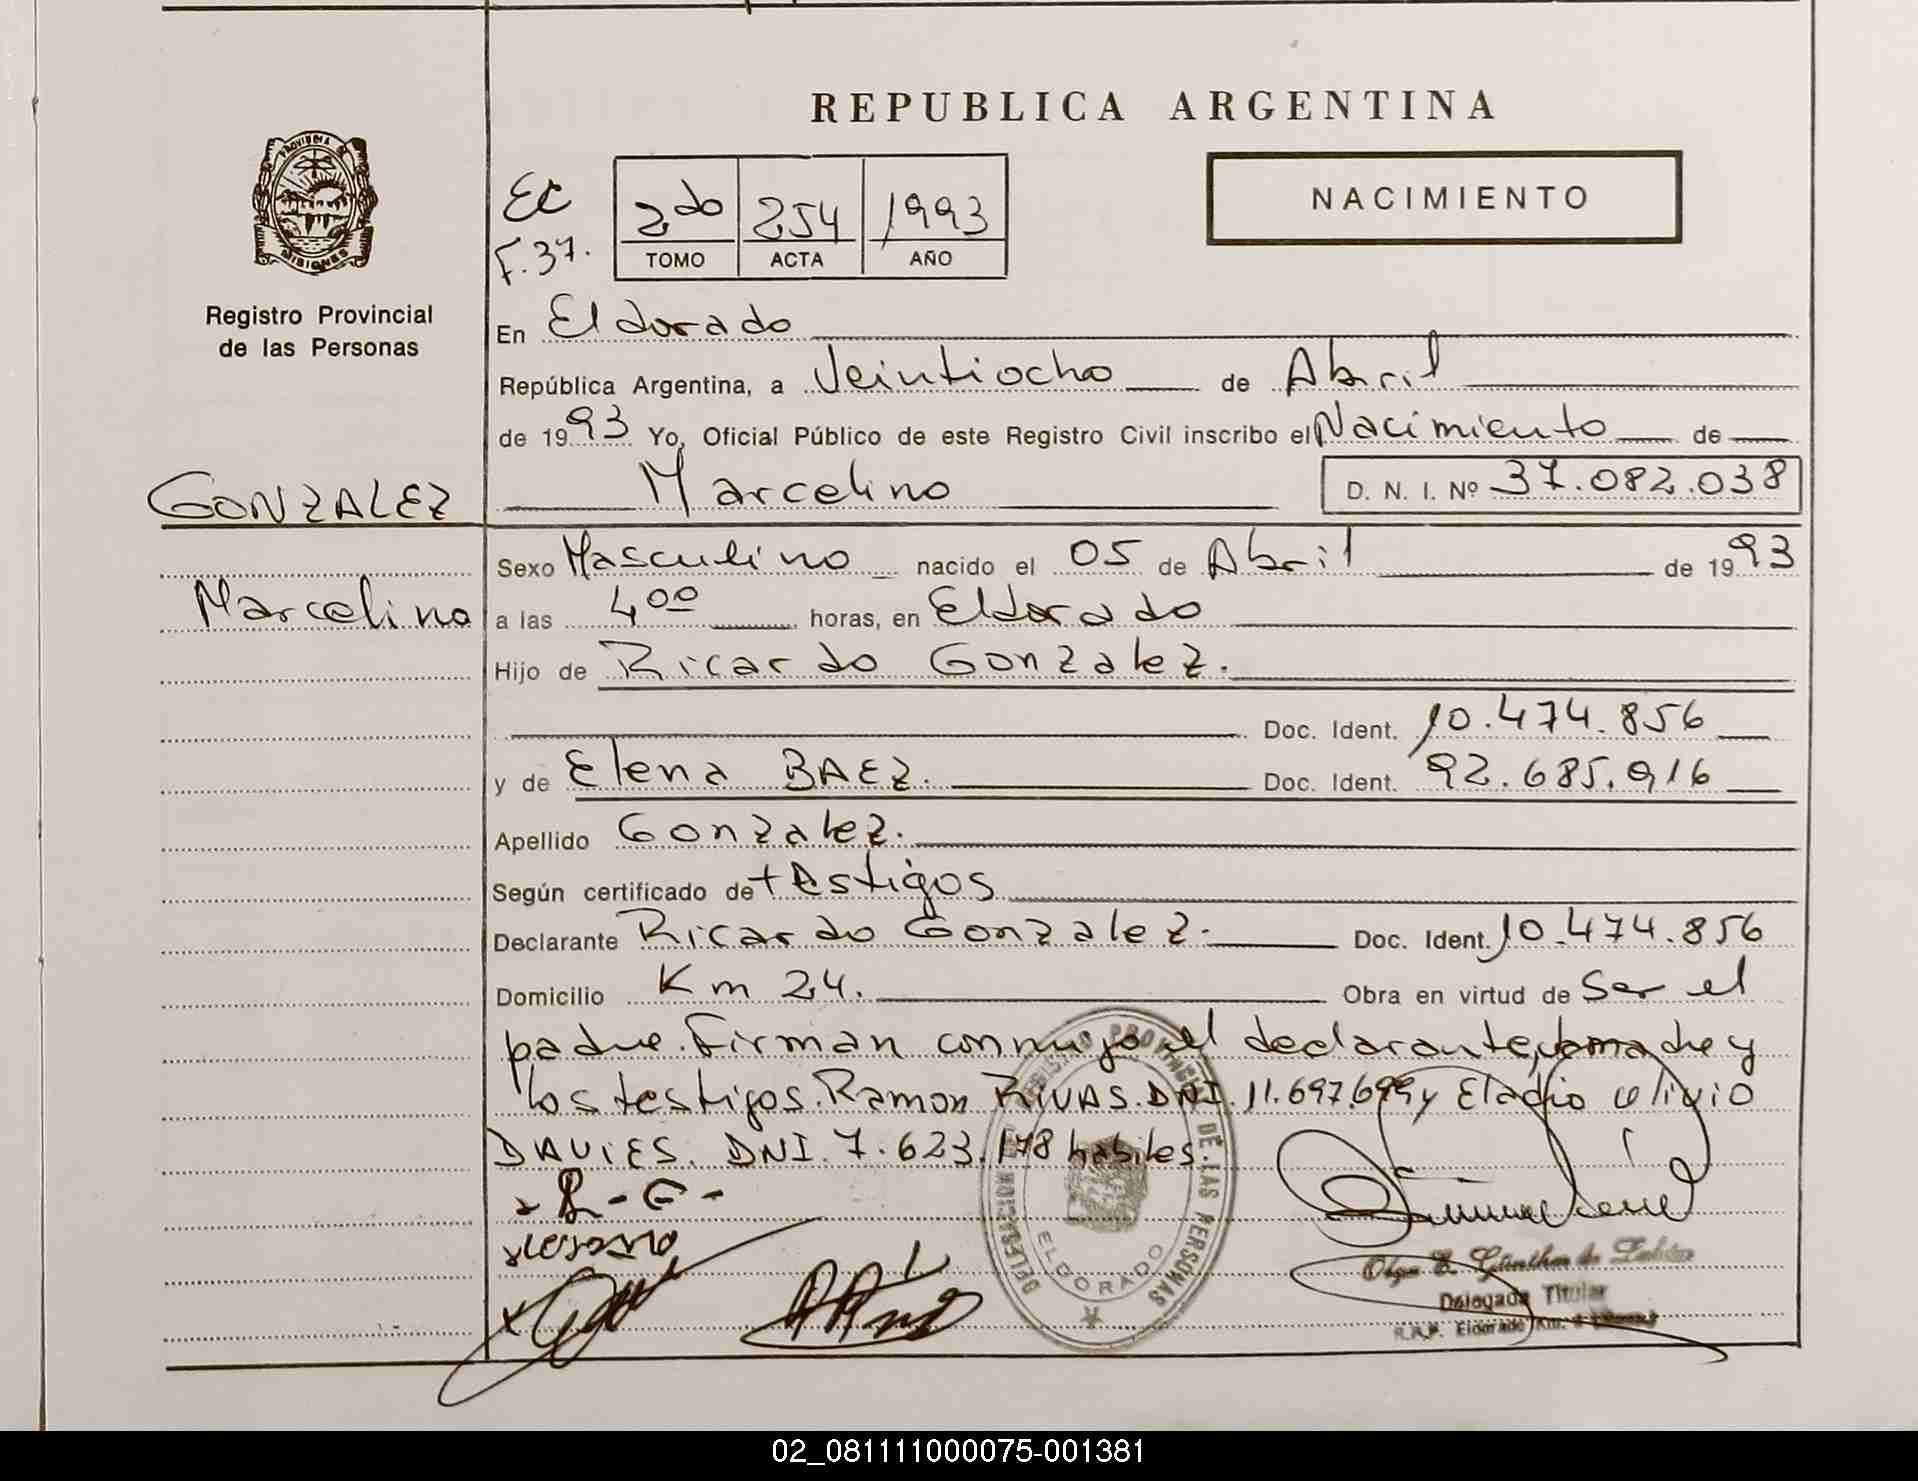 REPUBLICA ARGENTINA
PROVINCIA DE
MISIONES
Registro Provincial
de las Personas
EC
F. 37.
2do 254 1993
TOMO ACTA AÑO
NACIMIENTO
En Eldorado
República Argentina, a Veintiocho de Abril
de 1993 Yo, Oficial Público de este Registro Civil inscribo el Nacimiento de
Marcelino D. N. I. Nº 37.082.038
GONZALEZ
Marcelino
Sexo Masculino nacido el 05 de Abril de 1993
a las 4 00 horas, en Eldorado
Hijo de Ricardo Gonzalez.
Doc. Ident. 10.474.856
y de Elena BAEZ. Doc. Ident. 92.685.916
Apellido Gonzalez.
Según certificado de testigos
Declarante Ricardo Gonzalez. Doc. Ident. 10.474.856
Domicilio Km 24. Obra en virtud de Ser el
padre. Firman conmigo el declarante, la madre y
los testigos. Ramon RIVAS. DNI. 11.697.699 y Eladio Olivio
DAVIES. DNI. 7.623.178 habiles.
R - G -
DELEGACION DEL REGISTRO PROVINCIAL DE LAS PERSONAS
ELDORADO
Olga E. Günther de
Delegada Titular
R.P.P. Eldorado Km.
02_081111000075-001381